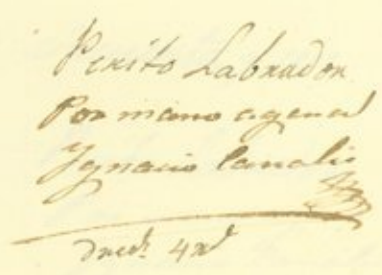 Perito Labrador
Por mano agena
Ygnacio Canalis
4 r^s